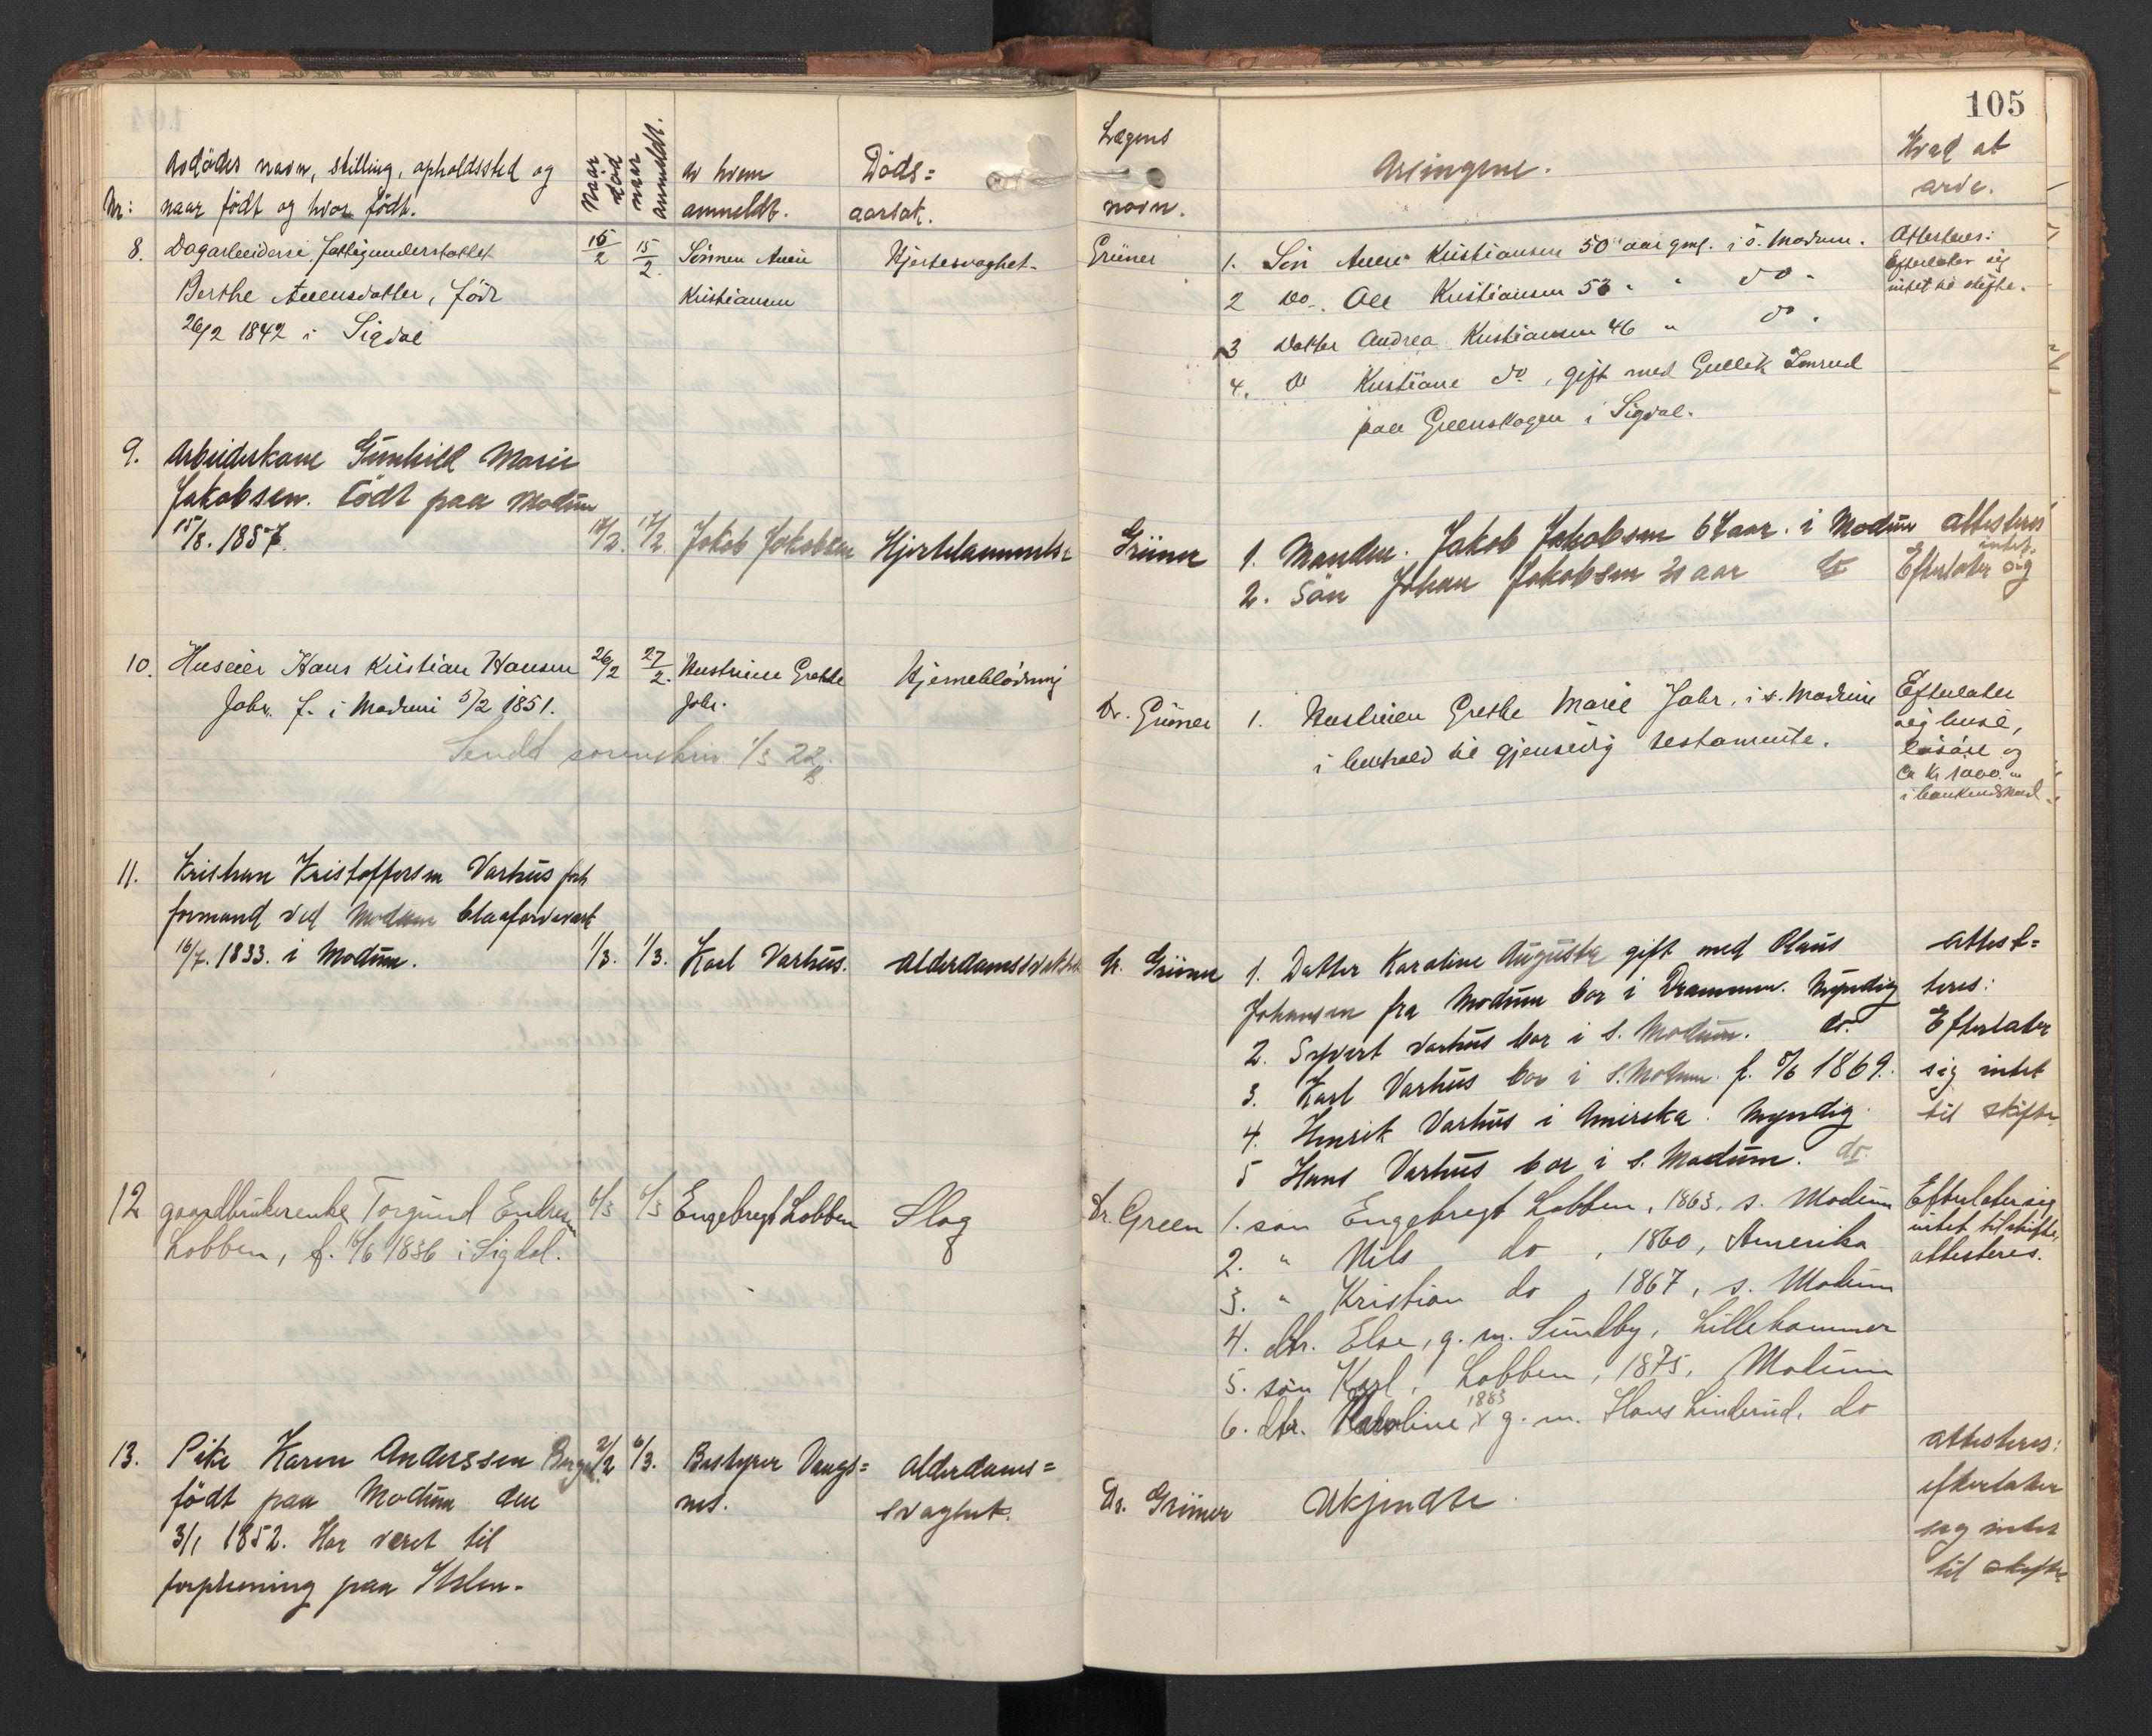 105
Avdødes navn, stilling, opholdssted og
Nr: naar født og hvor født.
Naar død
naar anmeldt.
Av hvem
anmeldt.
Døds=
aarsak.
Lægens
navn.
Arvingene.
Hvad at
arve.
8. Dagarbeiderske, fattigunderstøttet 15/2 15/2 Sønnen
Berthe født Kristiansen
26/2 1842 i Sigdal
Hjertesvaghet.
Grüner
1. Søn Kristiansen 50 aar gml. i s. Modum.
2 Do. Ole Kristiansen 53 " " do.
3 Datter Andrea Kristiansen 46 " do.
4. Do Kristiane do, gift med Gullik
paa i Sigdal.
Attesteres:
Efterlater sig
intet til skifte.
9. Arbeiderkone Gunhild Marie
Jakobsen. Født paa Modum
15/8. 1857. 17/2. 17/2 Jakob Jakobsen Hjertelammelse
Grüner 1. Manden. Jakob Jakobsen 64 aar. i Modum
2. Søn Johan Jakobsen 30 aar do
attesteres
intet.
Efterlater sig
10. Huseier Hans Kristian Hansen 26/2 27/2. Hustruen Grethe Hjerneblødning
Jahr. f. i Modum 5/2 1851. Jahr.
Sendt sorenskriv 1/3 22.
Dr. Grüner 1. Hustruen Grethe Marie Jahr, i s. Modum
i henhold til gjensidig testamente.
Efterlater
sig huse,
løsøre og
ca kr 1000.
i bankindskud.
11. Kristian Kristoffersen Varhus fhv
formand ved Modum blaafarveverk
16/7. 1833. i Modum. 1/3. 1/3. Karl Varhus. Alderdomssvakhet
Dr. Grüner 1. Datter Karoline Augusta gift med Olaus
Johansen fra Modum bor i Drammen. Myndig
2. Syvert Varhus bor i s. Modum. do.
3. Karl Varhus bor i s. Modum. f. 1869.
4. Henrik Varhus i Amerika. Myndig.
5 Hans Varhus bor i s. Modum. do.
Attest=
teres:
Efterlater
sig intet
til skifte.
12 gaardbrukerenke Torgund Endresen 6/3 6/3 Engebregt Lobben Slag
Lobben, f. 16/6 1836 i Sigdal.
Dr. Green 1. søn Engebregt Lobben, 1863, s. Modum
2. " Nils do, 1860, Amerika
3. " Kristian do, 1867, s. Modum
4. dtr. Else, g. m. Sundby, Lillehammer
5. søn Karl, Lobben, 1875, Modum
1883
6. dtr. Karoline, g. m. Hans Linderud. do
Efterlater sig
intet til skifte,
attesteres.
13. Pike Karen Anderssen 2/2 6/3. Bestyrer Vangs= Alderdoms=
født paa Modum den nes. svaghet.
3/1 1852. Har været til
forpleining paa
Dr. Grüner Ukjendte.
attesteres:
efterlater
sig intet
til skifte.